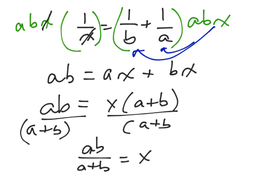 abx (1/x) = (1/b + 1/a) abx
ab = ax + bx
ab/(a+b) = x(a+b)/(a+b)
ab/a+b = x